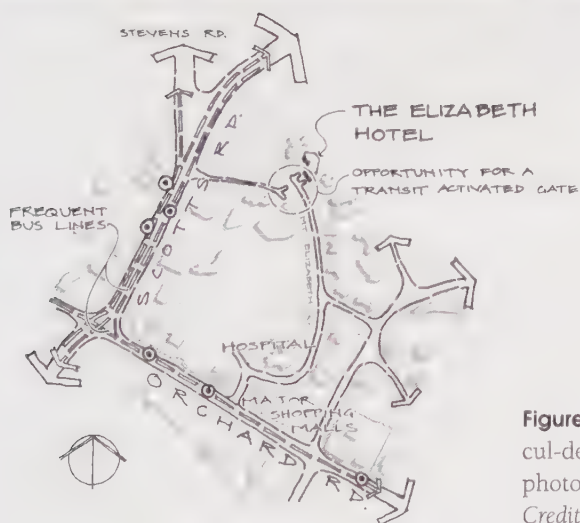 STEVENS RD.
THE ELIZABETH
HOTEL
OPPORTUNITY FOR A
TRANSIT ACTIVATED GATE
FREQUENT
BUS LINES
SCOTTS RD.
MT ELIZABETH
HOSPITAL
MAJOR
SHOPPING
MALLS
ORCHARD RD.
Figure
cul-de
photo
Credit